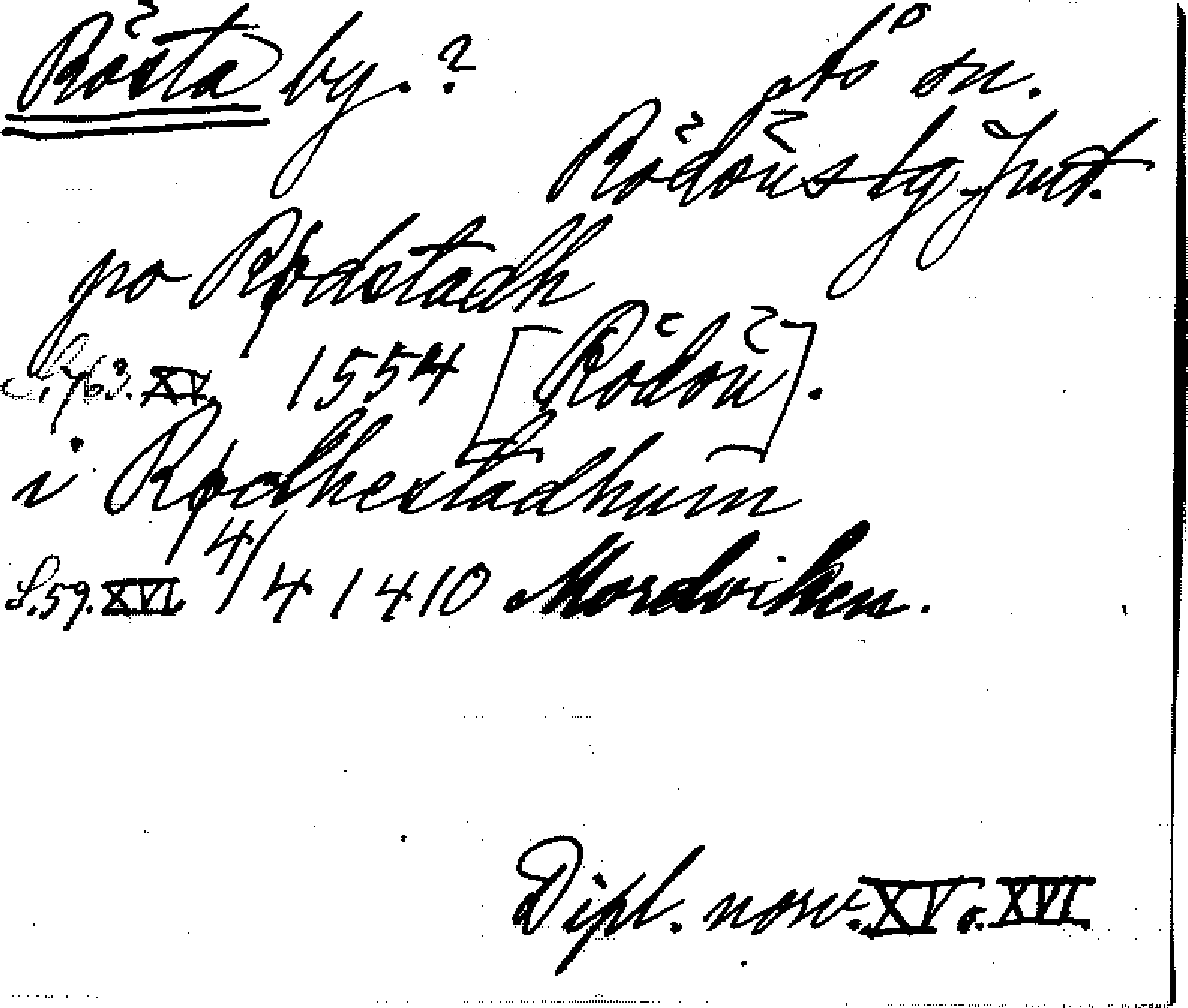 Rösta by. ? Ås sn.
Rödöns tg Jmt.
po Rødstadh
S. 763. XV. 1554 [Rödön].
i Rødhestadhum
S. 59. XVI. 4/4 1410 Mordviken.
Dipl. norv. XV o. XVI.